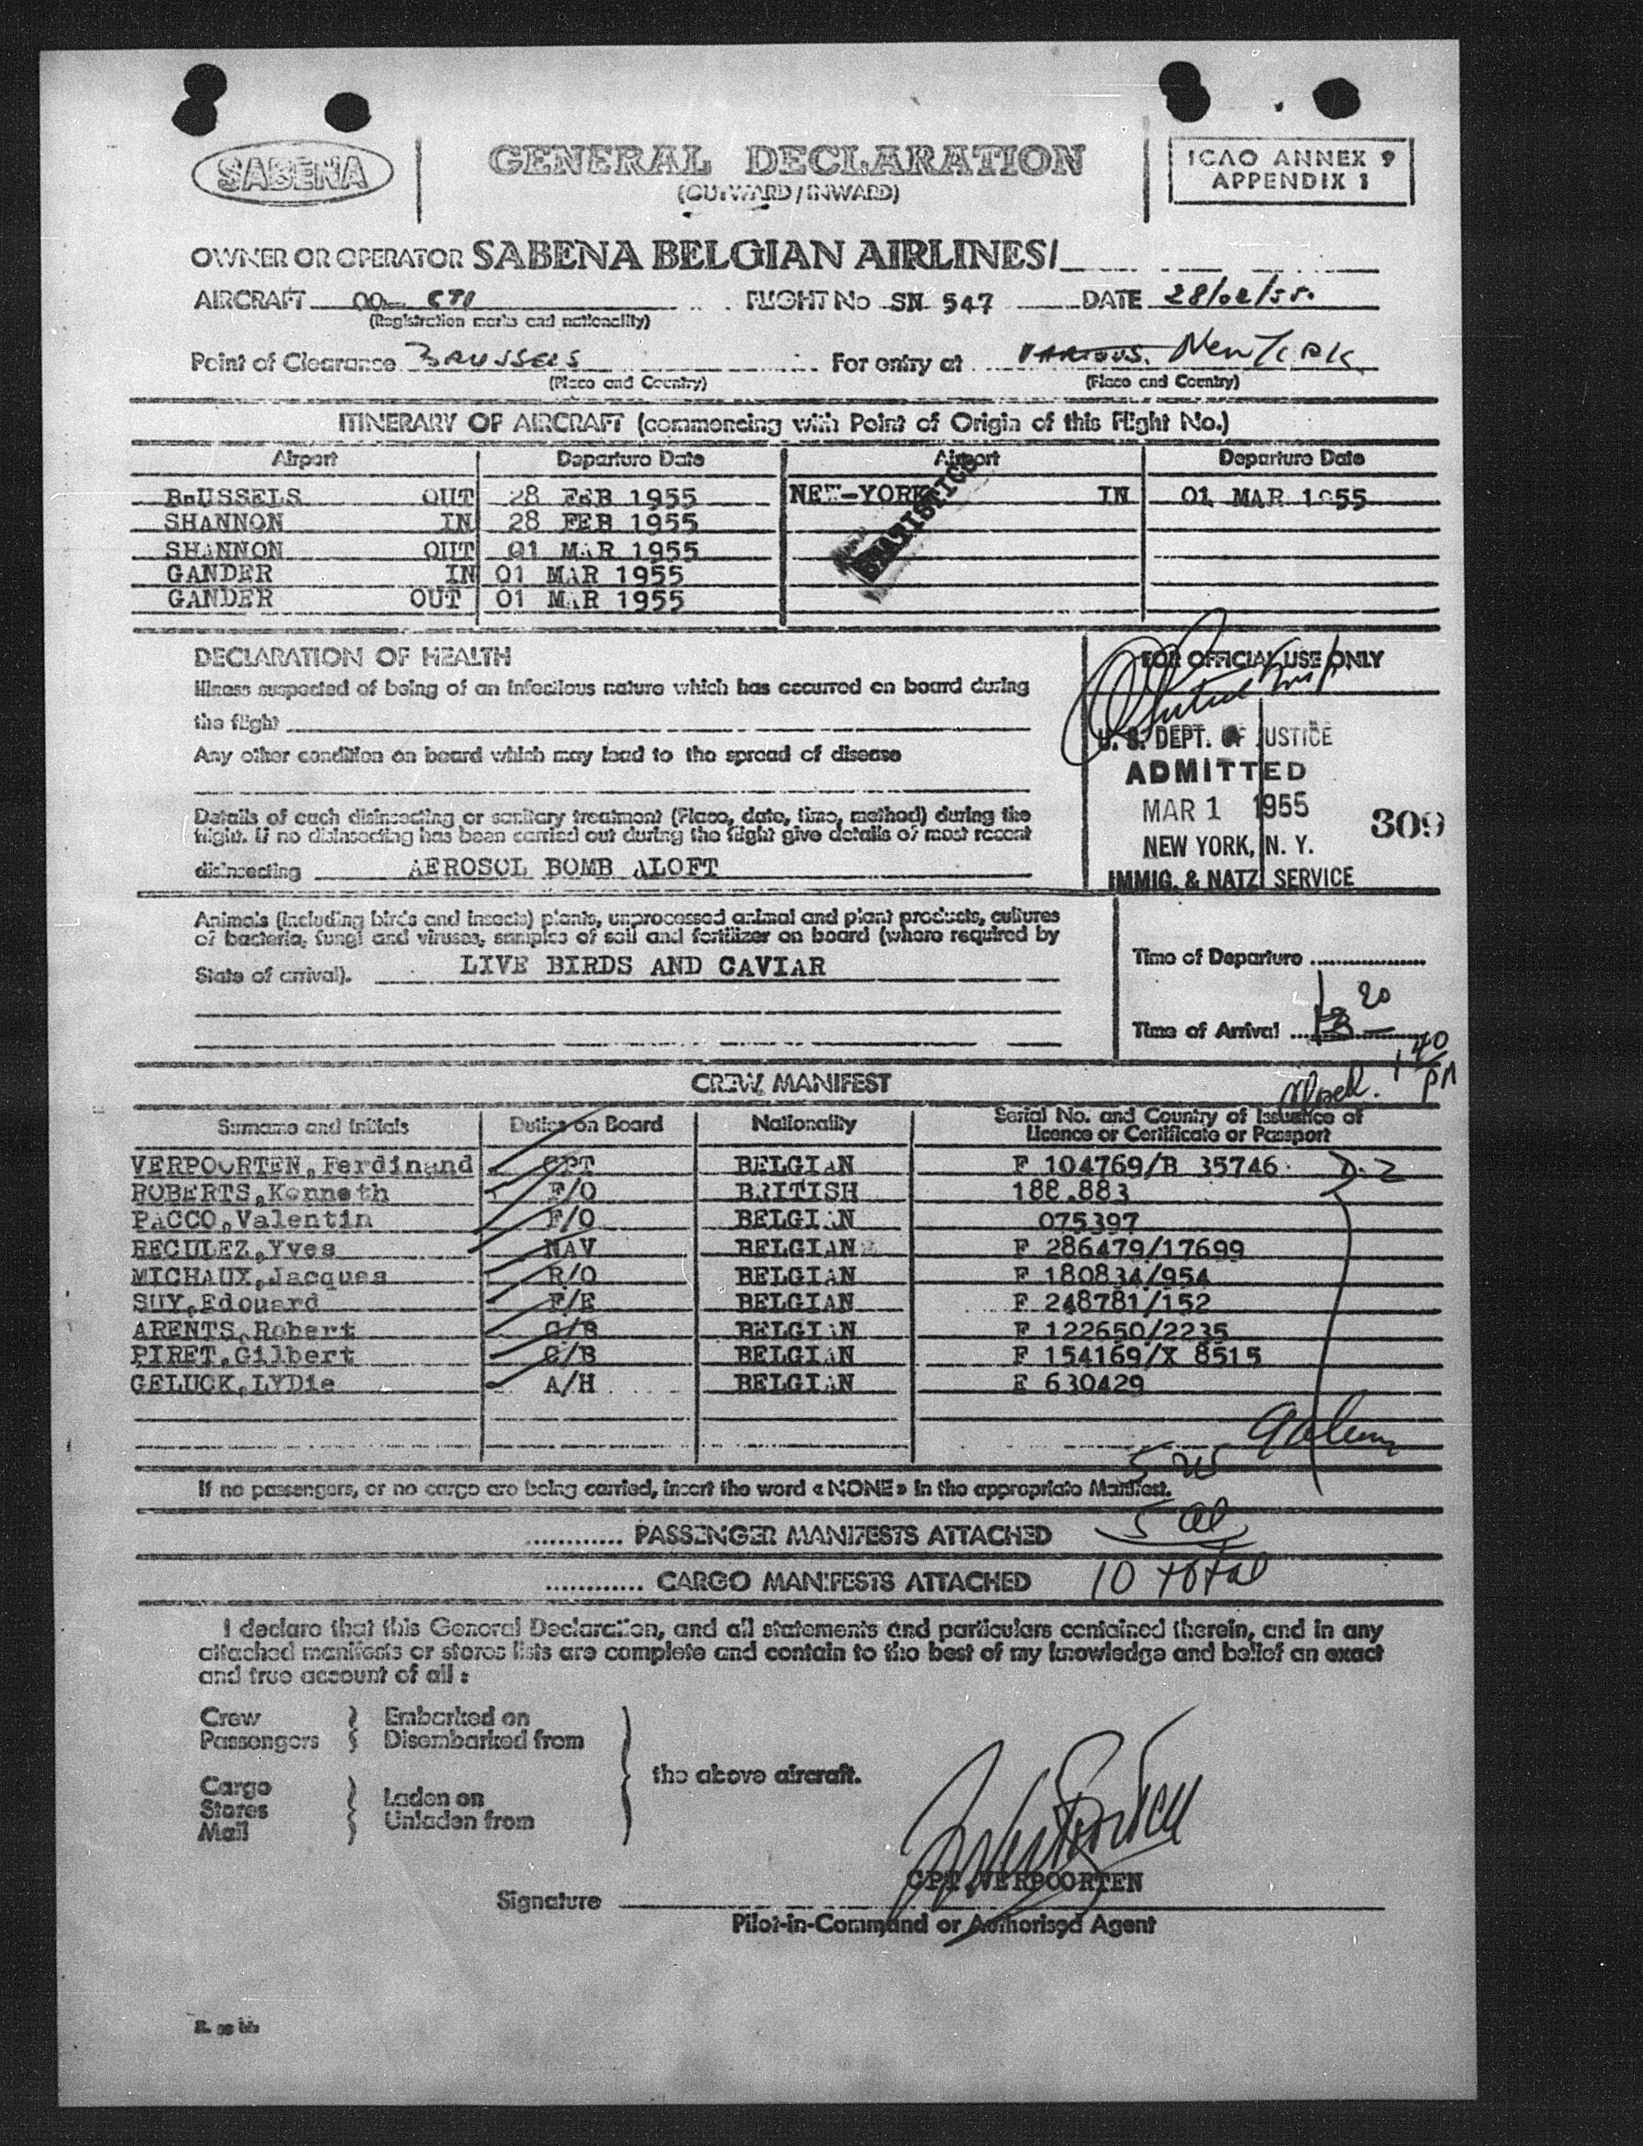 SABENA
GENERAL DECLARATION
(OUTWARD/INWARD)
ICAO ANNEX 9
APPENDIX 1
OWNER OR OPERATOR SABENA BELGIAN AIRLINES/
AIRCRAFT OO- CTI FLIGHT No SN 547 DATE 28/02/55.
(Registration marks and nationality)
Point of Clearance BRUSSELS For entry at VARIOUS. New York
(Place and Country) (Place and Country)
ITINERARY OF AIRCRAFT (commencing with Point of Origin of this Flight No.)
Airport Departure Date Airport Departure Date
BRUSSELS OUT 28 FEB 1955 NEW-YORK IN 01 MAR 1955
SHANNON IN 28 FEB 1955
SHANNON OUT 01 MAR 1955
GANDER IN 01 MAR 1955
GANDER OUT 01 MAR 1955
DECLARATION OF HEALTH
Illness suspected of being of an infectious nature which has occurred on board during
the flight
Any other condition on board which may lead to the spread of disease
Details of each disinsecting or sanitary treatment (Place, date, time, method) during the
flight. If no disinsecting has been carried out during the flight give details of most recent
disinsecting AEROSOL BOMB ALOFT
FOR OFFICIAL USE ONLY
U. S. DEPT. OF JUSTICE
ADMITTED
MAR 1 1955
309
NEW YORK, N. Y.
IMMIG. & NATZ. SERVICE
Animals (including birds and insects) plants, unprocessed animal and plant products, cultures
of bacteria, fungi and viruses, samples of soil and fertilizer on board (where required by
State of arrival). LIVE BIRDS AND CAVIAR
Time of Departure
20
Time of Arrival
1 40
PM
CREW MANIFEST
Surname and Initials Duties on Board Nationality Serial No. and Country of Issuance of
Licence or Certificate or Passport
VERPOORTEN,Ferdinand CPT BELGIAN F 104769/B 35746
ROBERTS,Kenneth F/O BRITISH 188.883
PACCO,Valentin F/O BELGIAN 075397
RECULEZ,Yves NAV BELGIAN F 286479/17699
MICHAUX,Jacques R/O BELGIAN F 180834/954
SUY,Edouard F/E BELGIAN F 248781/152
ARENTS,Robert C/B BELGIAN F 122650/2235
PIRET,Gilbert C/B BELGIAN F 154169/X 8515
GELUCK,LYDie A/H BELGIAN E 630429
If no passengers, or no cargo are being carried, insert the word « NONE » in the appropriate Manifest.
PASSENGER MANIFESTS ATTACHED
CARGO MANIFESTS ATTACHED 10 total
I declare that this General Declaration, and all statements and particulars contained therein, and in any
attached manifests or stores lists are complete and contain to the best of my knowledge and belief an exact
and true account of all :
Crew Embarked on
Passengers Disembarked from
the above aircraft.
Cargo Laden on
Stores Unladen from
Mail
CPT.VERPOORTEN
Signature
Pilot-in-Command or Authorised Agent